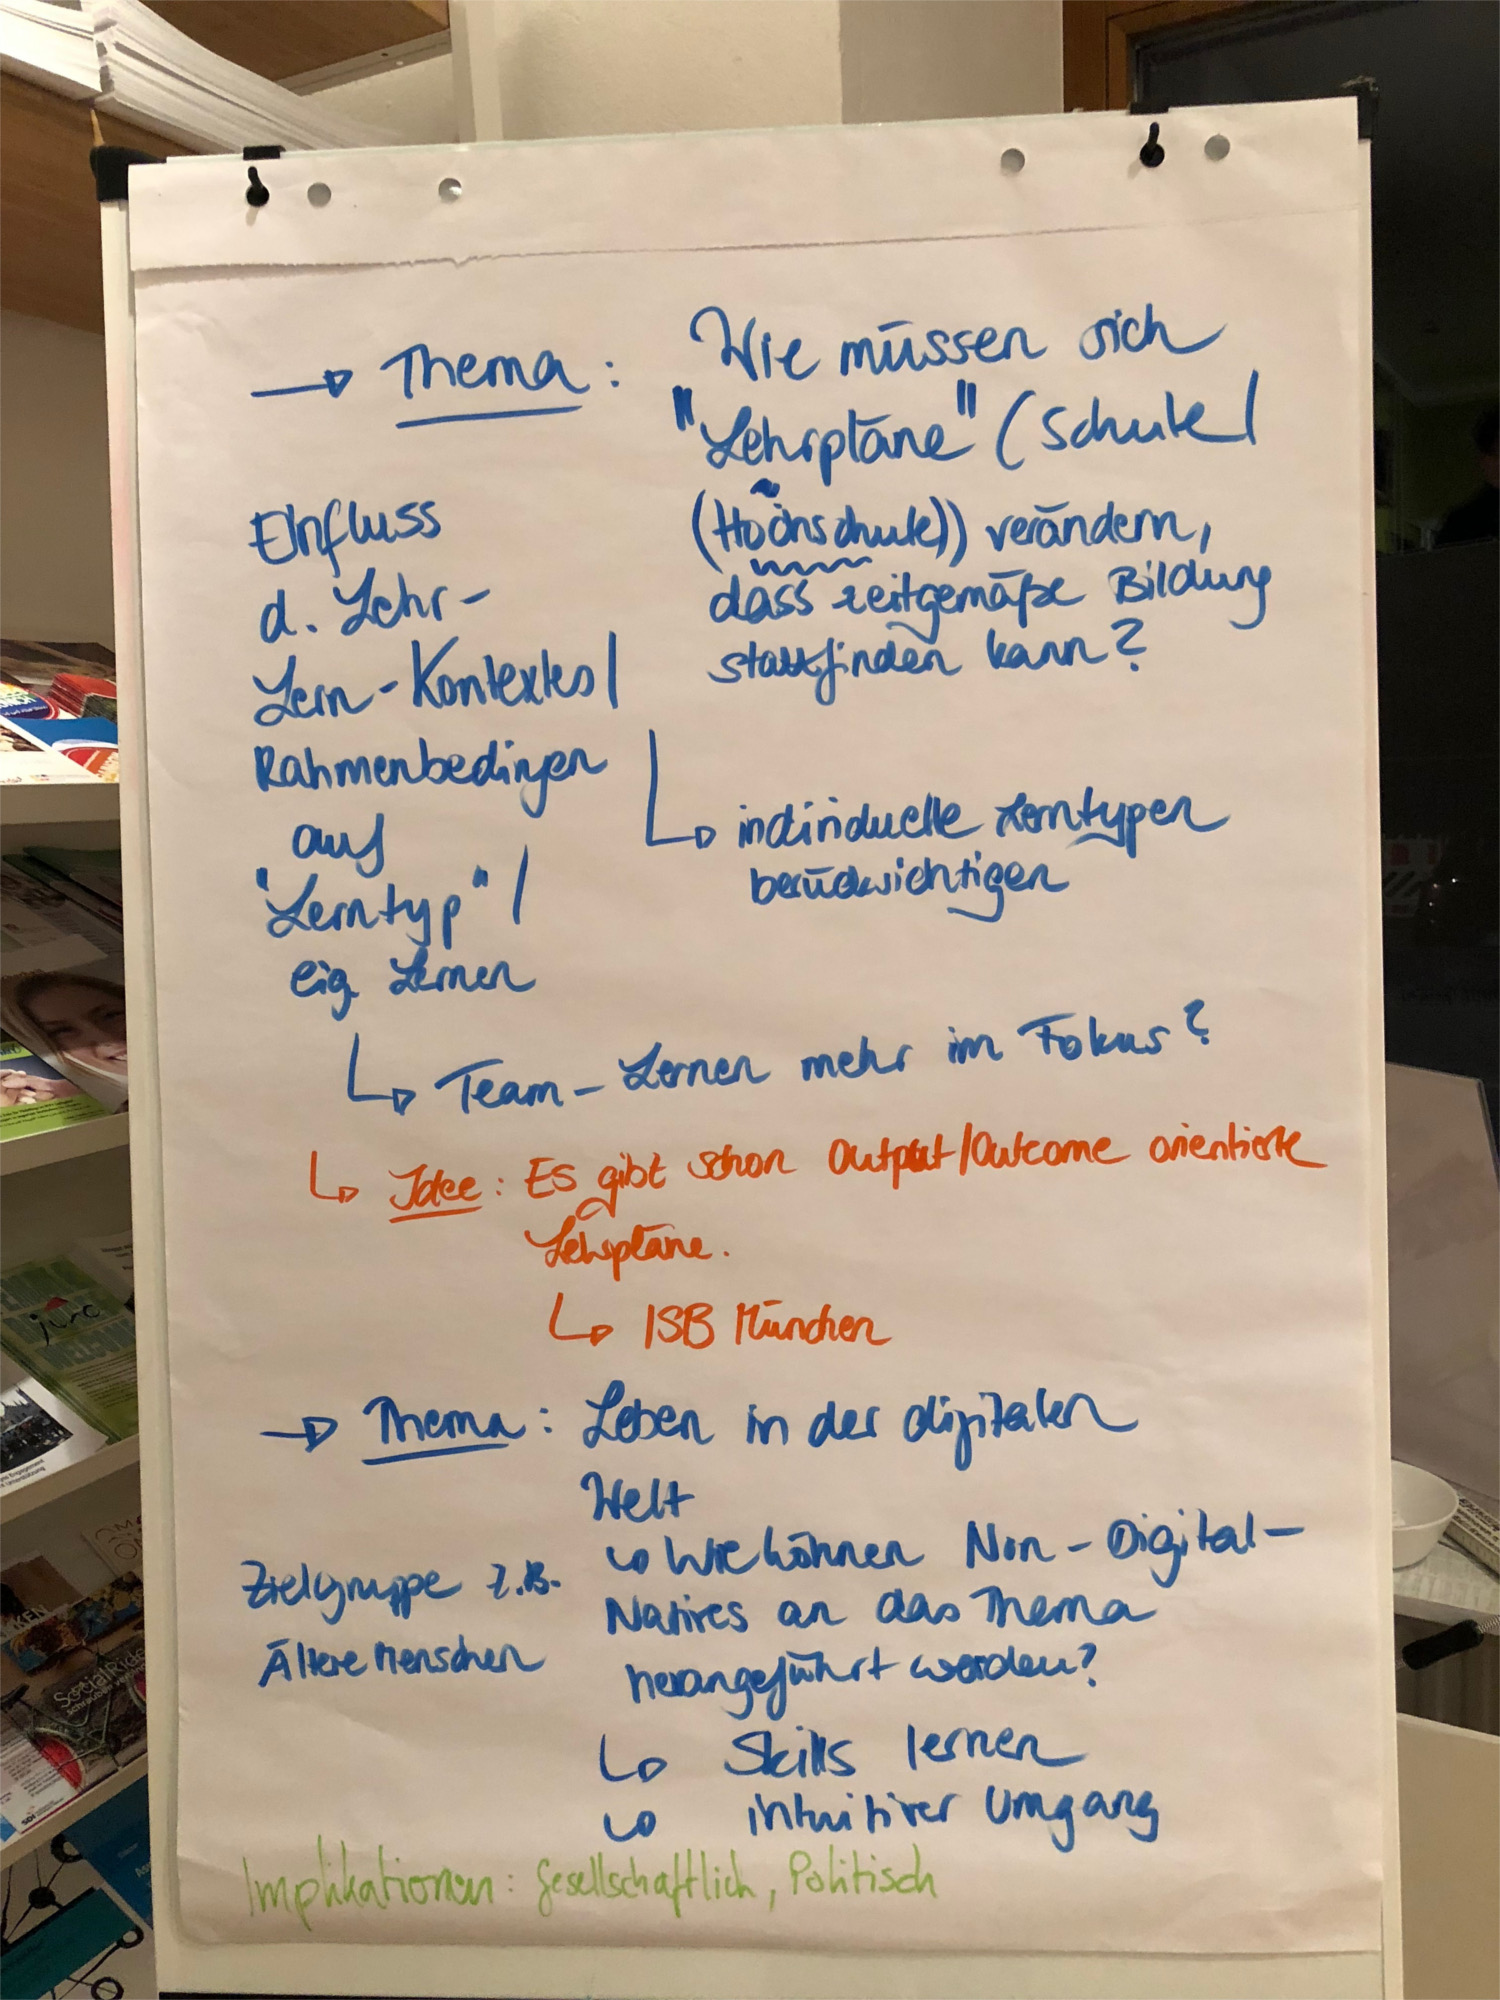 → Thema: Wie müssen sich
"Lehrpläne" (Schule/
(Hochschule)) verändern,
dass zeitgemäße Bildung
stattfinden kann?
↳ individuelle Lerntypen
berücksichtigen
Einfluss
d. Lehr-
Lern-Kontextes/
Rahmenbedingen
auf
"Lerntyp" /
eig. Lernen
↳ Team-Lernen mehr im Fokus?
↳ Idee: Es gibt schon Output/Outcome orientierte
Lehrpläne.
↳ ISB München
→ Thema: Leben in der digitalen
Welt
↳ Wie können Non-Digital-
Natives an das Thema
herangeführt werden?
Zielgruppe z.B.
Ältere Menschen
↳ Skills lernen
↳ intuitiver Umgang
Implikationen: Gesellschaftlich, Politisch
junc
Social Ride